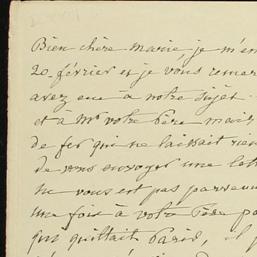 Bien chère Marie, je m'em
20 février et je vous remer
avez eue à notre sujet.
et a Mr votre Père mais
de fer qui ne laissait rien
de vous envoyer une let
ne vous est pas parvenu
une fois à votre Père pa
qui quittait Paris, il p